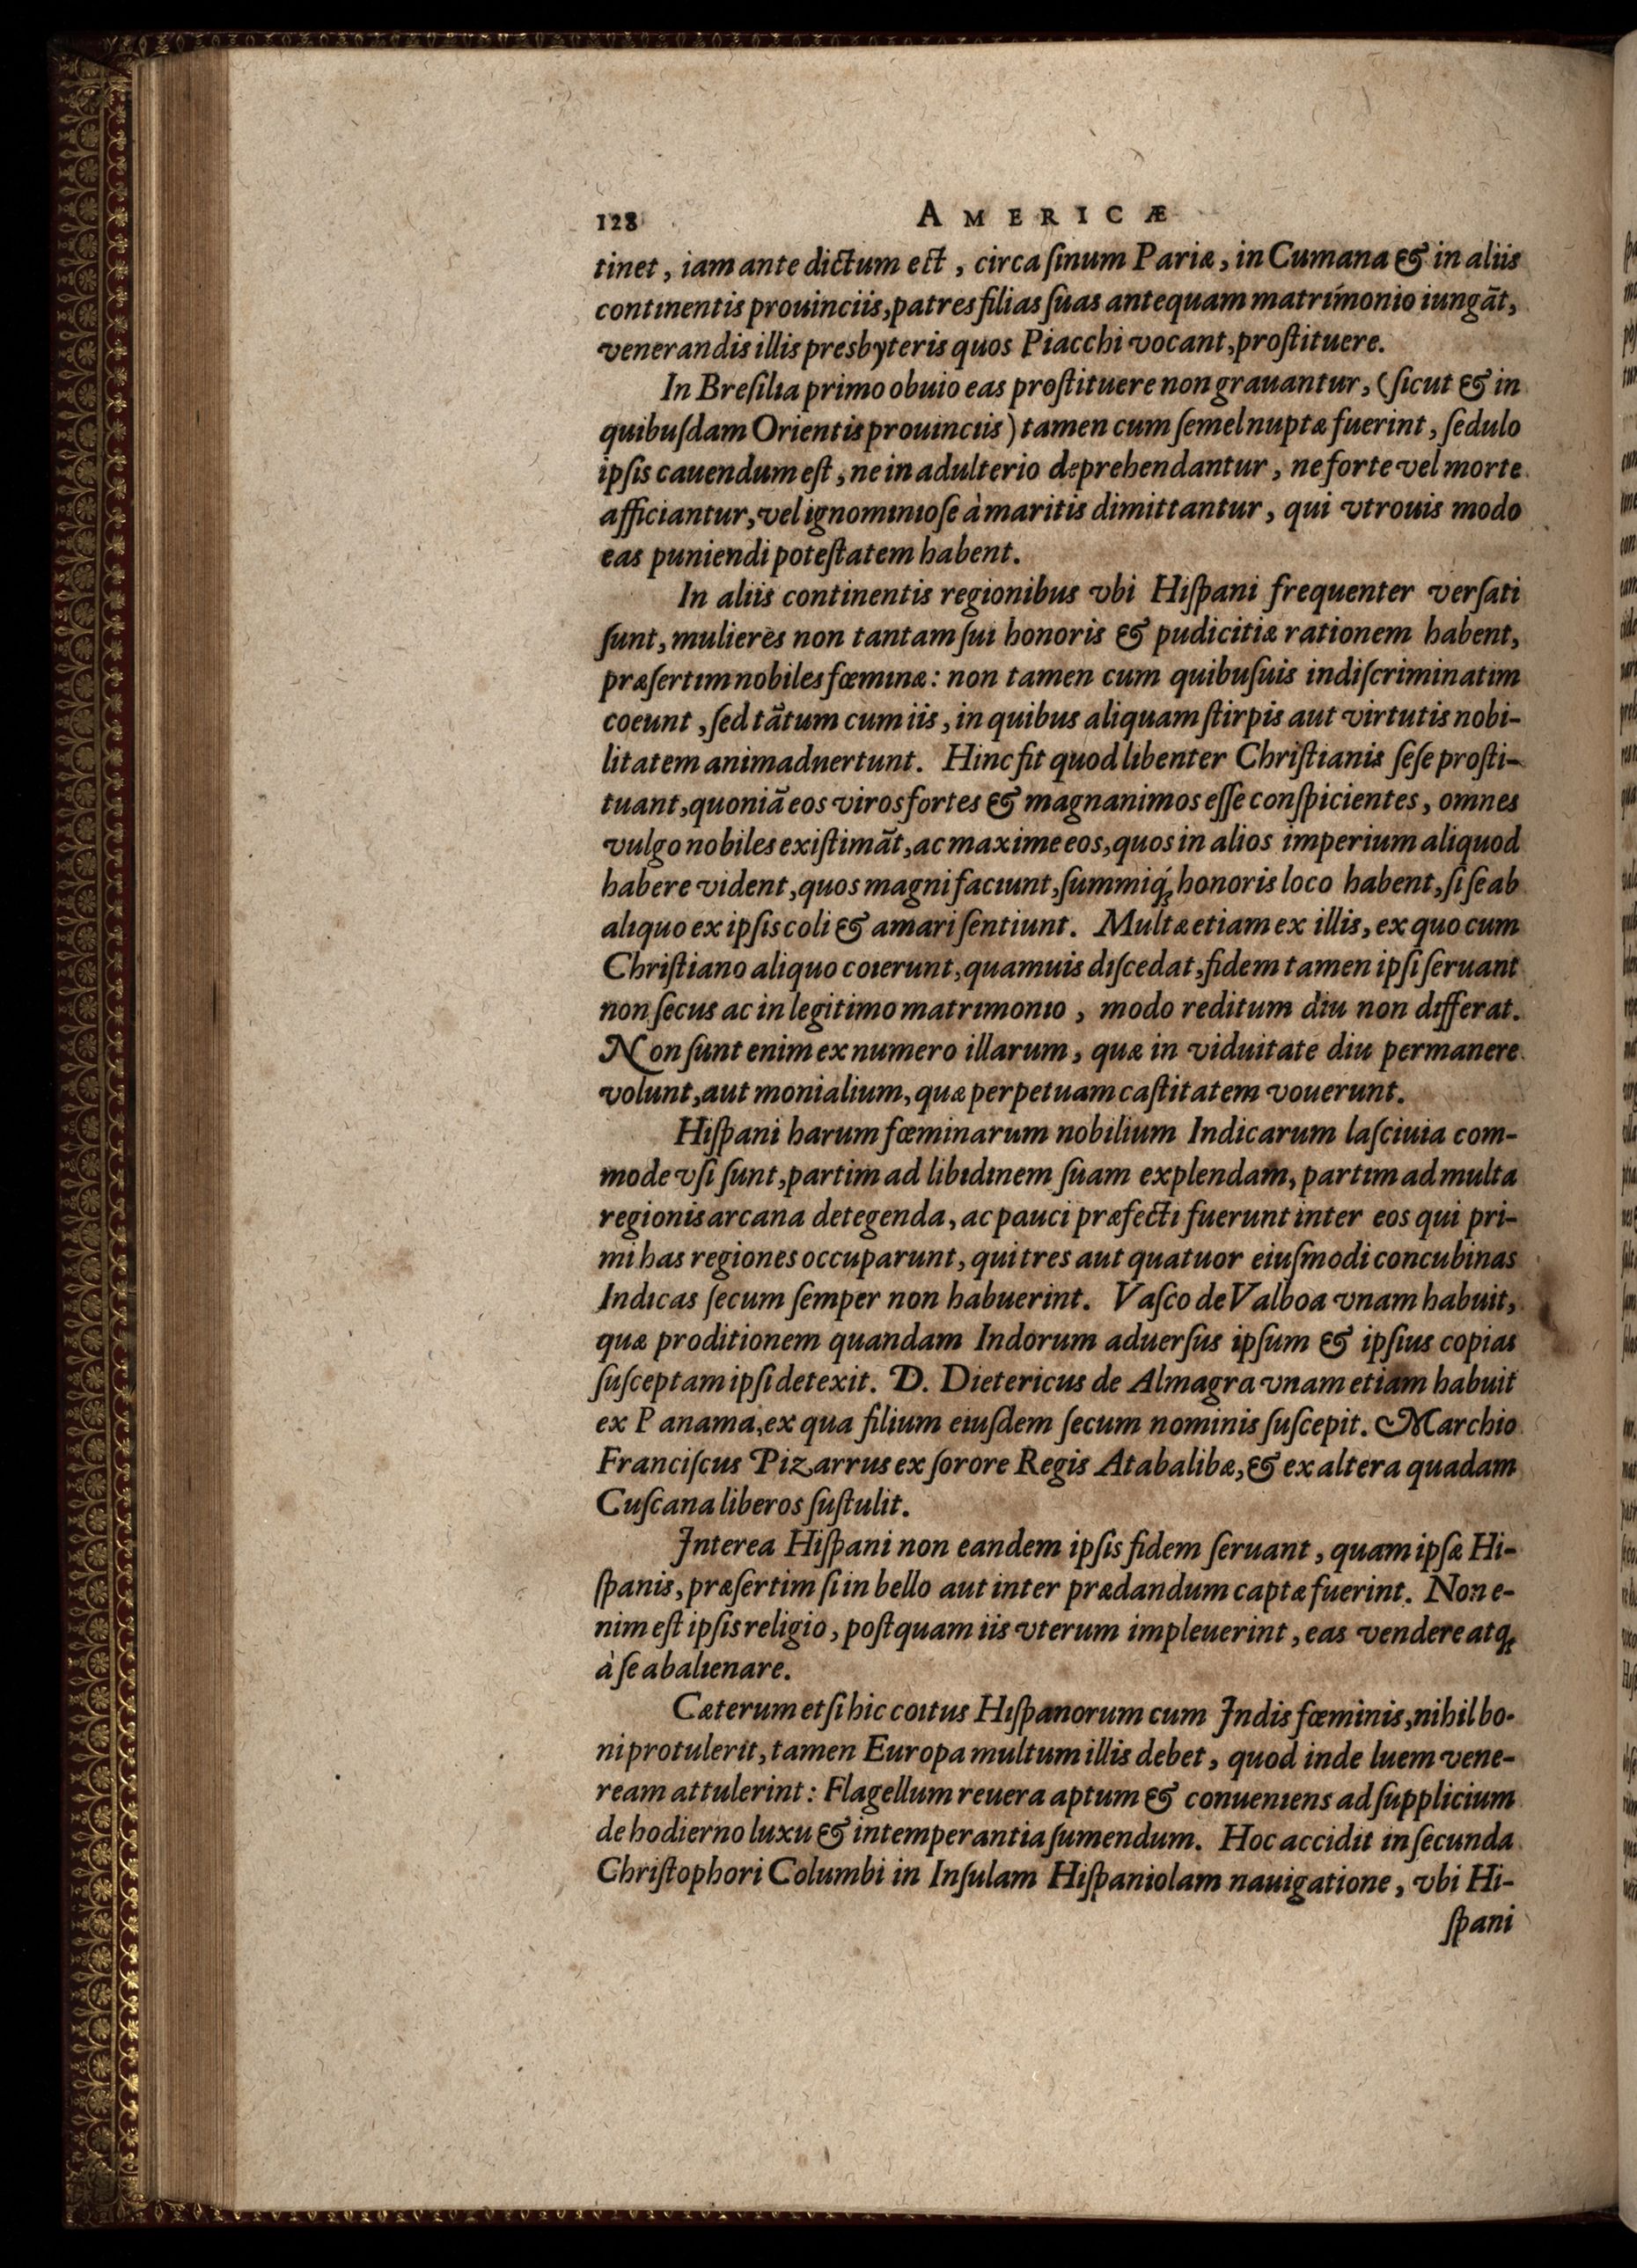 128 AMERICÆ
tinet, iam ante dictum est, circa ſinum Pariæ, in Cumana & in aliis
continentis prouinciis, patres filias ſuas antequam matrimonio iungāt,
venerandis illis presbyteris quos Piacchi vocant, proſtituere.
In Breſilia primo obuio eas proſtituere non grauantur, (ſicut & in
quibuſdam Orientis prouinciis) tamen cum ſemel nuptæ fuerint, ſedulo
ipſis cauendum eſt, ne in adulterio deprehendantur, ne forte vel morte
afficiantur, vel ignominioſe à maritis dimittantur, qui vtrouis modo
eas puniendi poteſtatem habent.
In aliis continentis regionibus vbi Hiſpani frequenter verſati
ſunt, mulieres non tantam ſui honoris & pudicitiæ rationem habent,
præſertim nobiles fœminæ: non tamen cum quibuſuis indiſcriminatim
coeunt, ſed tātum cum iis, in quibus aliquam ſtirpis aut virtutis nobi-
litatem animaduertunt. Hinc fit quod libenter Chriſtianis ſeſe proſti-
tuant, quoniā eos viros fortes & magnanimos eſſe conſpicientes, omnes
vulgo nobiles exiſtimāt, ac maxime eos, quos in alios imperium aliquod
habere vident, quos magni faciunt, ſummiq́ꝫ honoris loco habent, ſi ſe ab
aliquo ex ipſis coli & amari ſentiunt. Multæ etiam ex illis, ex quo cum
Chriſtiano aliquo coierunt, quamuis diſcedat, fidem tamen ipſi ſeruant
non ſecus ac in legitimo matrimonio, modo reditum diu non differat.
Non ſunt enim ex numero illarum, quæ in viduitate diu permanere
volunt, aut monialium, quæ perpetuam caſtitatem vouerunt.
Hiſpani harum fœminarum nobilium Indicarum laſciuia com-
mode vſi ſunt, partim ad libidinem ſuam explendam, partim ad multa
regionis arcana detegenda, ac pauci præfecti fuerunt inter eos qui pri-
mi has regiones occuparunt, qui tres aut quatuor eiuſmodi concubinas
Indicas ſecum ſemper non habuerint. Vaſco de Valboa vnam habuit,
quæ proditionem quandam Indorum aduerſus ipſum & ipſius copias
ſuſceptam ipſi detexit. D. Dietericus de Almagra vnam etiam habuit
ex Panama, ex qua filium eiuſdem ſecum nominis ſuſcepit. Marchio
Franciſcus Pizarrus ex ſorore Regis Atabalibæ, & ex altera quadam
Cuſcana liberos ſuſtulit.
Interea Hiſpani non eandem ipſis fidem ſeruant, quam ipſæ Hi-
ſpanis, præſertim ſi in bello aut inter prædandum captæ fuerint. Non e-
nim eſt ipſis religio, poſtquam iis vterum impleuerint, eas vendere atqꝫ
à ſe abalienare.
Cæterum etſi hic coitus Hiſpanorum cum Indis fœminis, nihil bo-
ni protulerit, tamen Europa multum illis debet, quod inde luem vene-
ream attulerint: Flagellum reuera aptum & conueniens ad ſupplicium
de hodierno luxu & intemperantia ſumendum. Hoc accidit in ſecunda
Chriſtophori Columbi in Inſulam Hiſpaniolam nauigatione, vbi Hi-
ſpani